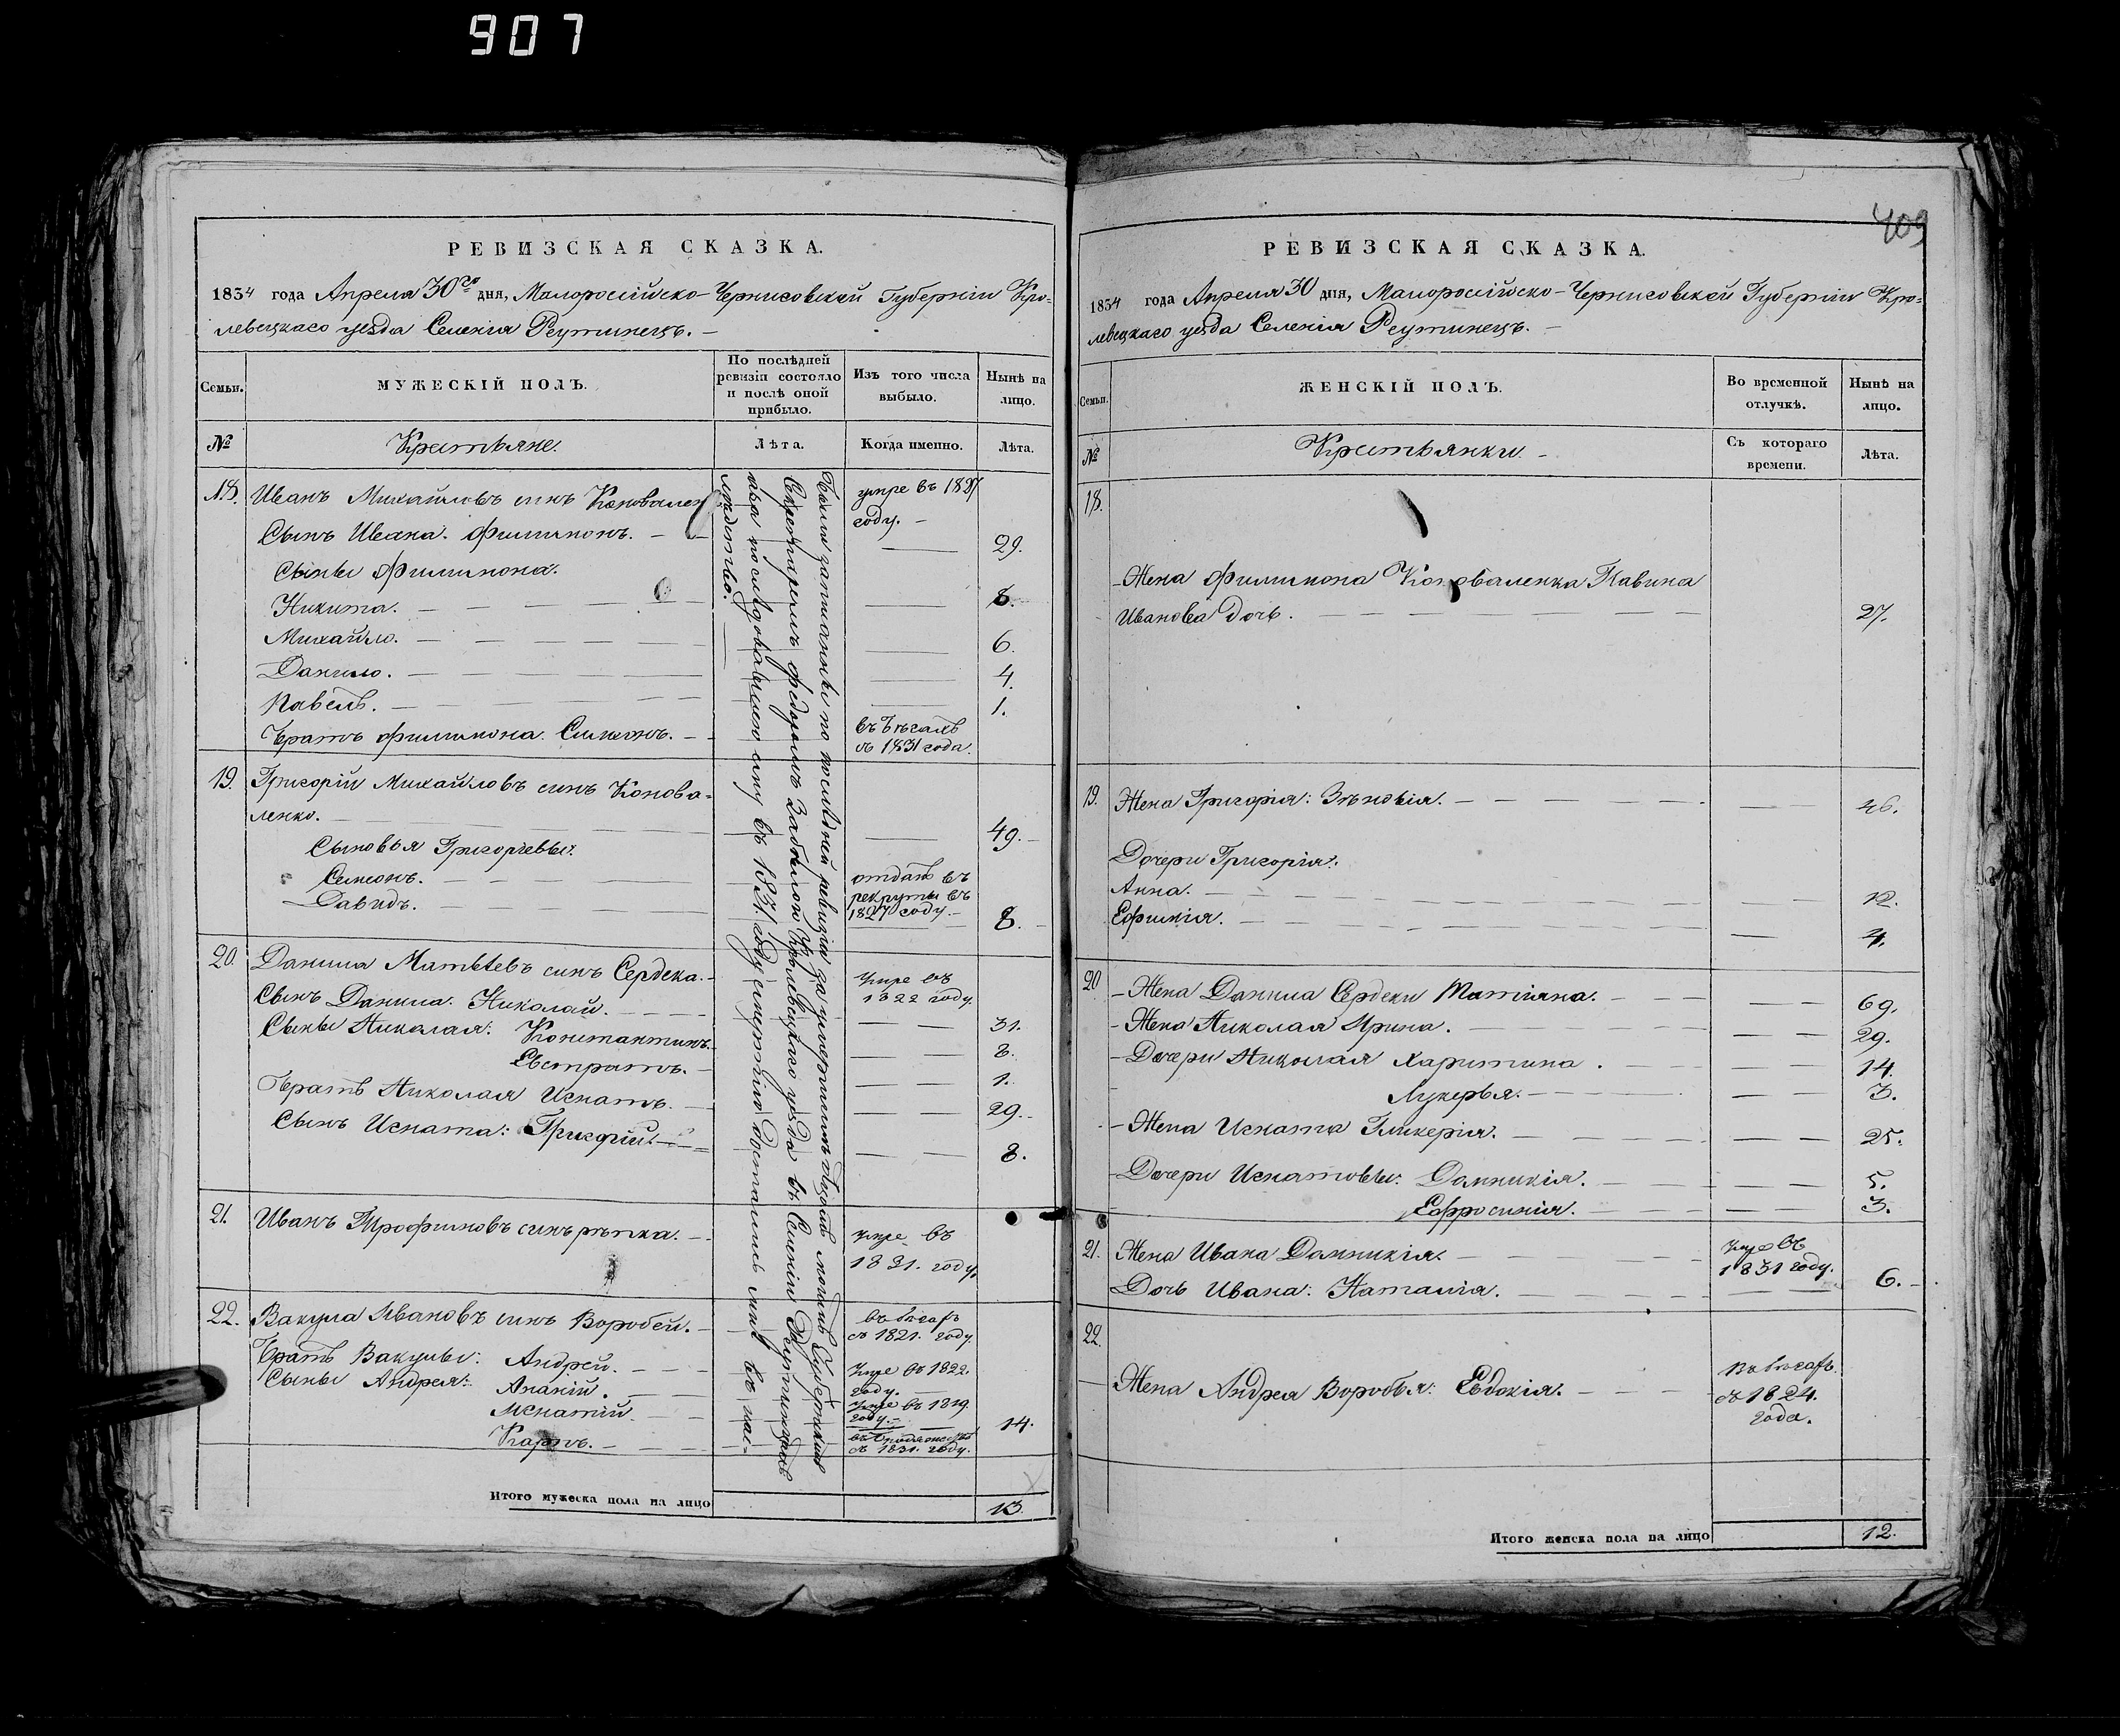 907
409
РЕВИЗСКАЯ СКАЗКА.
1834 года Апреля 30го дня, Малороссійско-Черниговской Губерніи Кро-
левецкаго уезда Селенія Реутинецъ. –
Семьи.
МУЖЕСКІЙ ПОЛЪ.
По послѣдней ревизіи состояло и послѣ оной прибыло.
Изъ того числа выбыло.
Нынѣ на лицо.
№
Крестьяне.
Лѣта.
Когда именно.
Лѣта.
18. Иванъ Михайловъ синъ Коновален умре въ 1827
году. –
Сынъ Ивана. Филимонъ. – 29.
Сыны Филимона.
Никита. – 8.
Михайло. – 6.
Данило. – 4.
Павелъ. – 1.
Братъ Филимона. Симеонъ. – въ Бѣгахъ
съ 1831 года.
19. Григорій Михайловъ синъ Конова-
ленко. – 49.
Сыновья Григоріевы:
Симеонъ. – отданъ въ
рекруты въ
1827 году. –
Давидъ. – 8.
20. Данила Матвѣевъ синъ Сердека. – умре въ
1822 году.
Сынъ Данила. Николай. – 31.
Сыны Николая: Константинъ. – 8.
Евстратъ. – 1.
Братъ Николая Игнатъ. – 29.
Сынъ Игната: Григорій. – 8.
21. Иванъ Трофимовъ синъ рѣпка. – умре въ
1831. году
22. Вакула Ивановъ синъ Воробей. – въ бѣгахъ
съ 1821. году
Братъ Вакулы: Андрей. – Умре въ 1822.
году. –
Сыны Андрея: Ананій. – умре въ 1819.
году. –
Игнатій. – 14.
Карпъ. – съ 1831. году.
Были записанны по последней ревизіи за
Кролевецкаго уезда въ Селеніи
по следовавшею ему въ 1831. году смертію достались мне въ нас-
ледство. –
Итого мужеска пола на лицо 13.
РЕВИЗСКАЯ СКАЗКА.
1834 года Апреля 30 дня, Малороссійско-Черниговской Губерніи Кро-
левецкаго уезда Селенія Реутинецъ. –
Семьи.
ЖЕНСКІЙ ПОЛЪ.
Во временной отлучкѣ.
Нынѣ на лицо.
№
Крестьянки. –
Съ котораго времени.
Лѣта.
18.
Жена Филимона Коноваленка Павлина
Иванова дочь. – 27.
19. Жена Григорія: Зѣновія. – 46.
Дочери Григорія:
Анна. – 12.
Ефимія. – 4.
20 – Жена Данила Сердеки Матіяна. – 69.
– Жена Николая Ирина. – 29.
– Дочери Николая Харитина. – 14.
Лукерья. – 3.
– Жена Игната Гликерія. – 25.
– Дочери Игнатовы: Домникія. – 5.
Ефросинія. – 3.
21. Жена Ивана Домникія. – умре въ
1831 году.
Дочь Ивана: Наталія. – 6. –
22.
Жена Андрея Воробья: Евдокія. – въ бѣгахъ
съ 1824.
года.
Итого женска пола на лицо 12.